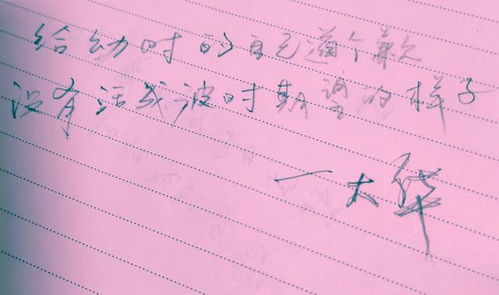 给幼时的自己道个歉
没有活成彼时期望的样子
一大华